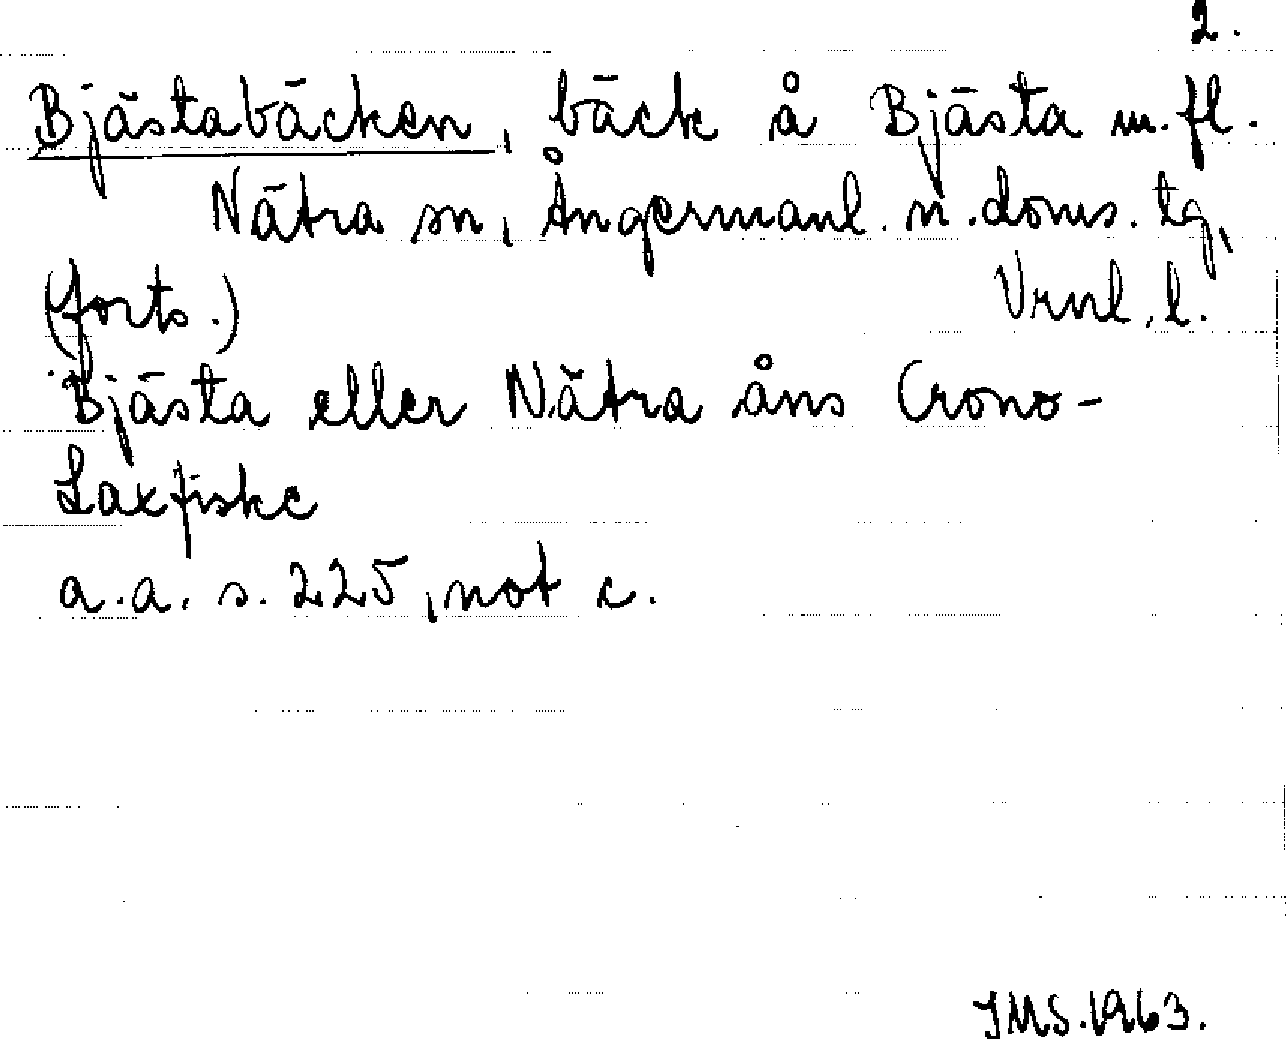 2.
Bjästabäcken, bäck å Bjästa m.fl.
Nätra sn, Ångermanl. n. doms. tg,
(forts.) Vrnl. l.
Bjästa eller Nätra åns Crono-
Laxfiske
a.a. s. 225, not c.
JMS. 1963.